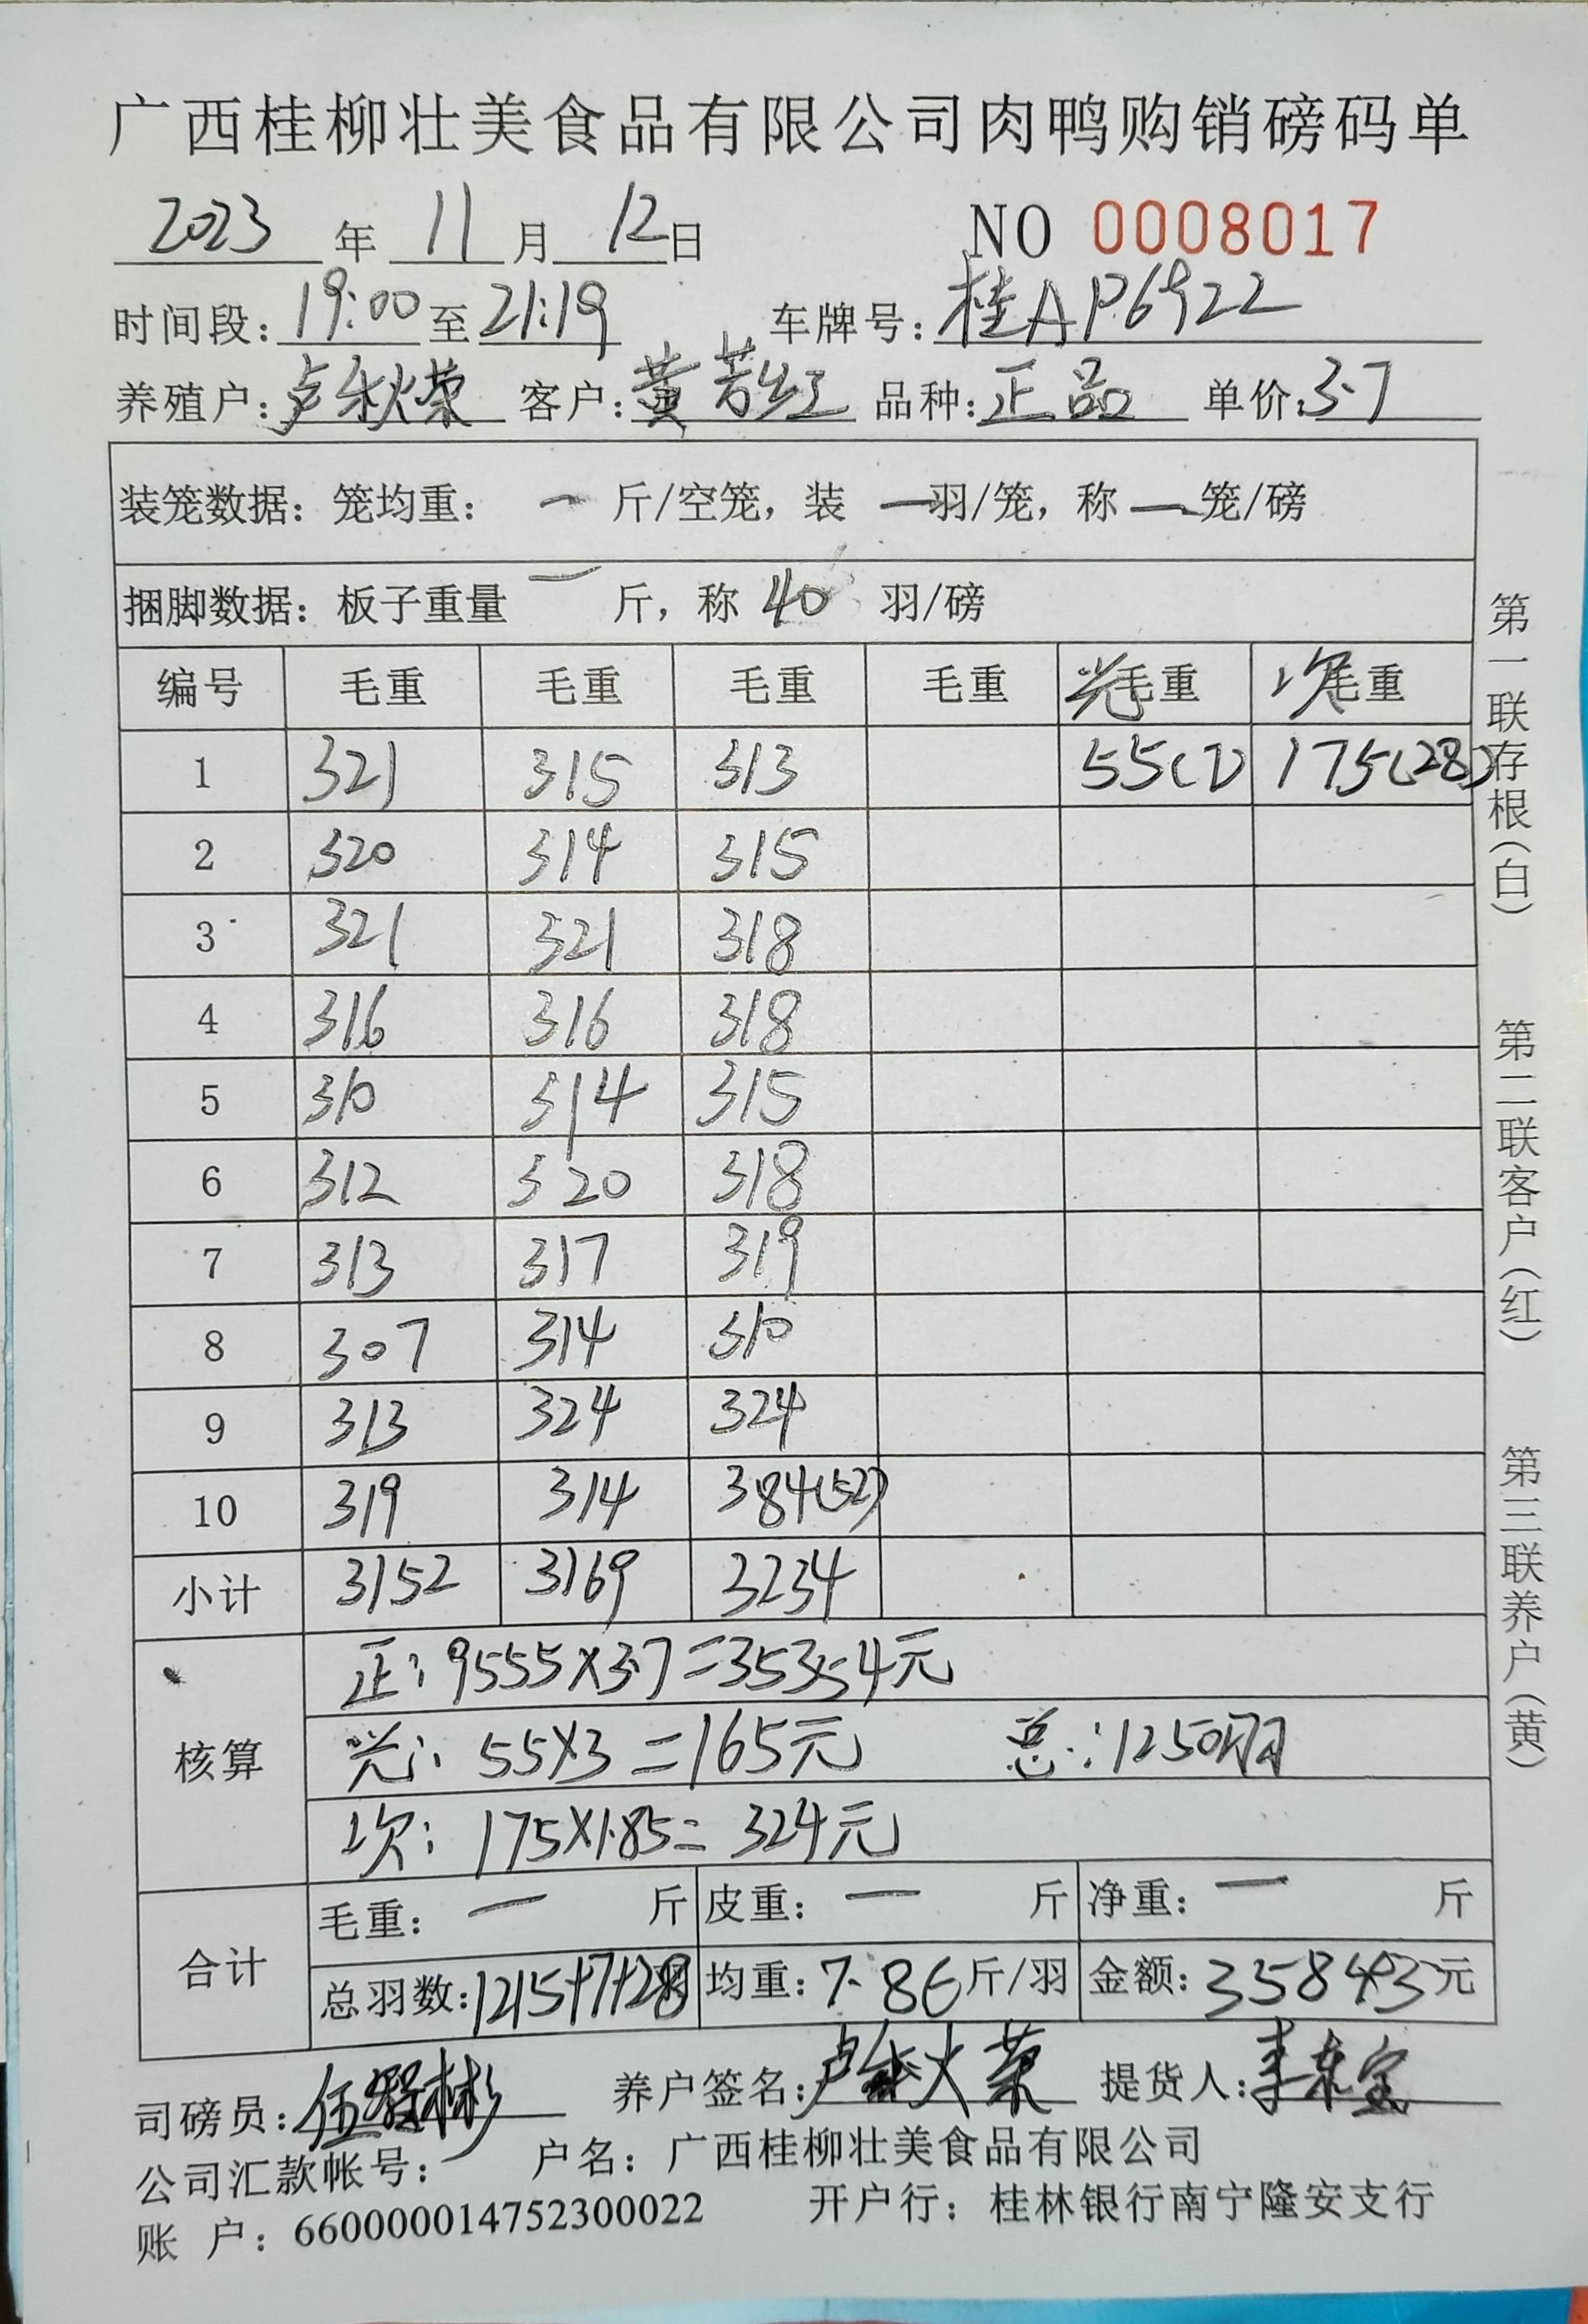 广西桂柳壮美食品有限公司肉鸭购销磅码单
2023年11月12日 NO 0008017
时间段:19:00至21:19 车牌号:桂AP6922
养殖户:卢秋荣 客户:黄芳红 品种:正品 单价:3.7
装笼数据:笼均重: 一 斤/空笼,装 一羽/笼,称 一笼/磅
捆脚数据:板子重量 一 斤,称 40 羽/磅
编号 毛重 毛重 毛重 毛重 光毛重 次毛重
1 321 315 313 55(7) 175(28)
2 320 314 315
3 321 321 318
4 316 316 318
5 310 314 315
6 312 320 318
7 313 317 319
8 307 314 310
9 313 324 324
10 319 314 384(52)
小计 3152 3169 3234
正:9555×3.7=35354元
核算 光:55×3=165元 总:1250羽
次:175×1.85=324元
合计 毛重: 一 斤 皮重: 一 斤 净重: 一 斤
总羽数:1215+7+28 均重:7.86斤/羽 金额:35843元
司磅员: 养户签名: 提货人:李东宝
公司汇款帐号: 户名:广西桂柳壮美食品有限公司
账 户:660000014752300022 开户行:桂林银行南宁隆安支行
第一联存根(白) 第二联客户(红) 第三联养户(黄)